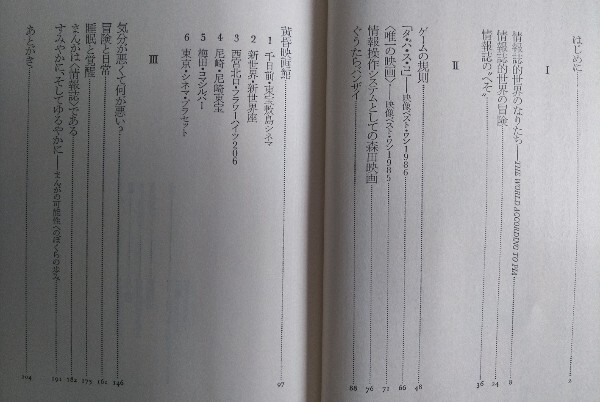 はじめに 2
I
情報誌的世界のなりたち——THE WORLD ACCORDING TO PIA 8
情報誌的世界の冒険 24
情報誌の〝へそ〟 36
II
ゲームの規則 48
映像ベスト・ワン1986 66
〈唯一の映画〉——映像ベスト・ワン1985 72
情報操作システムとしての森田映画 76
ぐうたらバンザイ 88
黄昏映画館 97
1 千日前・東宝敷島シネマ
2 新世界・新世界座
3 西宮北口・フラワーハイツ206
4 尼崎・尼崎東宝
5 梅田・コマシルバー
6 東京・シネマ・プラセット
III
気分が悪くて何が悪い? 146
冒険と日常 161
睡眠と覚醒 175
まんがは〈情報〉である 182
すみやかに、そしてゆるやかに——まんがの可能性へのぼくらの歩み 191
あとがき 204